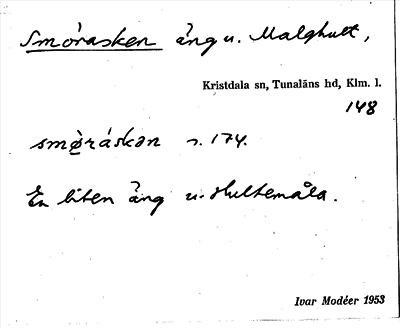 Smörasken äng u. Malghult,
Kristdala sn, Tunaläns hd, Klm. l.
148
smø̀ráskən s. 174.
En liten äng u. Hultemåla.
Ivar Modéer 1953